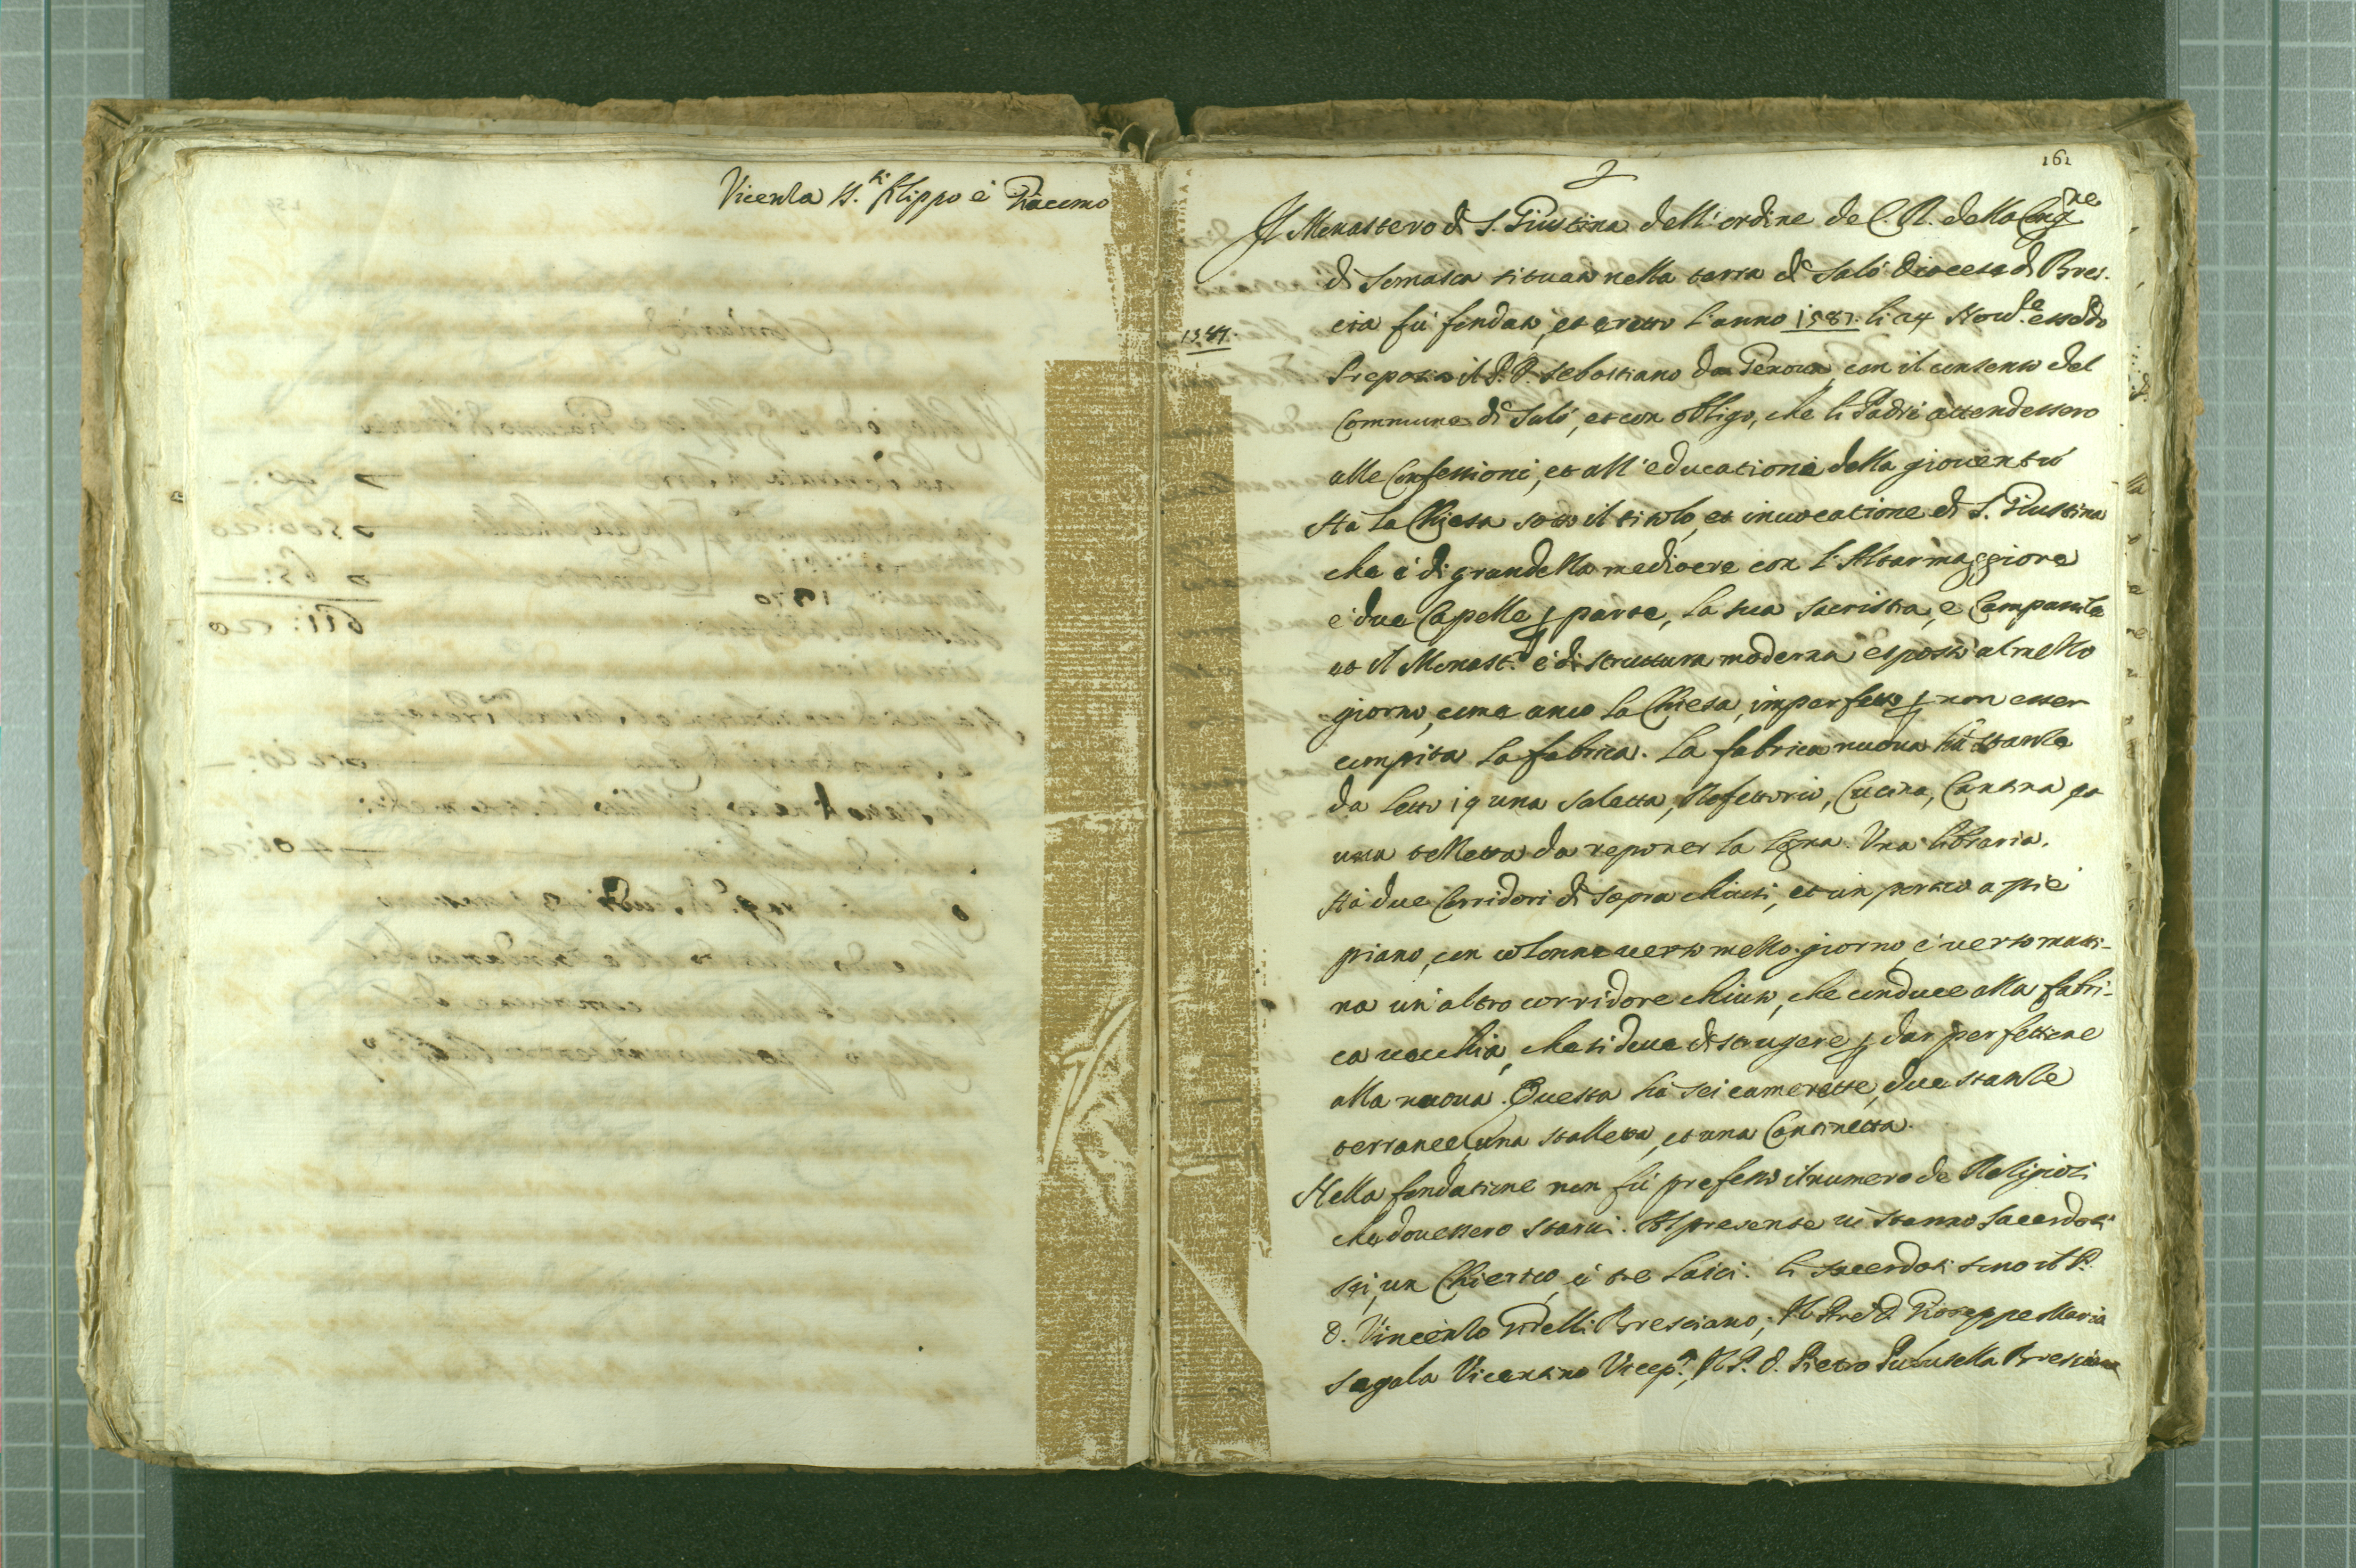 Vicenza SS.ti filippo è Giacomo
161
Il Monastero di S. Giustina dell'ordine de C. R. della Cong.ne
di Somasca situato nella terra di Salò Diocesa di Bres-
cia fù fondato, et eretto l'anno 1587. li 24 Nou.e essedo
1587.
Preposto il P. P. Sebastiano da Genoua, con il consenso del
Commune di Salò, et con obligo, che li Padri attendessero
alle Confessioni, et all'educatione della giouentù
Hà la Chiesa sotto il titolo, et inuocatione di S. Giustina
che è di grandezza mediocre con l'Altar maggiore
e due Capelle p parte, la sua sacristia, e Campanile
et il Monast.o è di struttura moderna esposto al mezzo
giorno, come anco la Chiesa, imperfetto p non esser
compita la fabrica. La fabrica nuoua hà stanze
da letto 19 una saletta, Refettorio, Cucina, Cantina, et
una celletta da reponer la legna. Una libraria.
Hà due Corridori di sopra chiusi, et un portico a piè
piano, con colonne verso mezzo giorno, è verso matti-
na un'altro corridore chiuso, che conduce alla fabri-
ca vecchia, che si deue distrugere p dar perfettione
alla nuoua. Questa hà sei camerette, due stanze
terranee, una stalletta, et una Cantinetta.
Nella fondatione non fù prefisso il numero de Religiosi
che douessero starui. Al presente ui stanno Sacerdoti
sei, un Chierico, è tre laici. li sacerdoti sono il P.
D. Vincenzo Gidelli Bresciano; Il Pre D. Gioseppe Maria
Segala Vicentino Vicep.o, Il P. D. Pietro Paluzella Bresciano